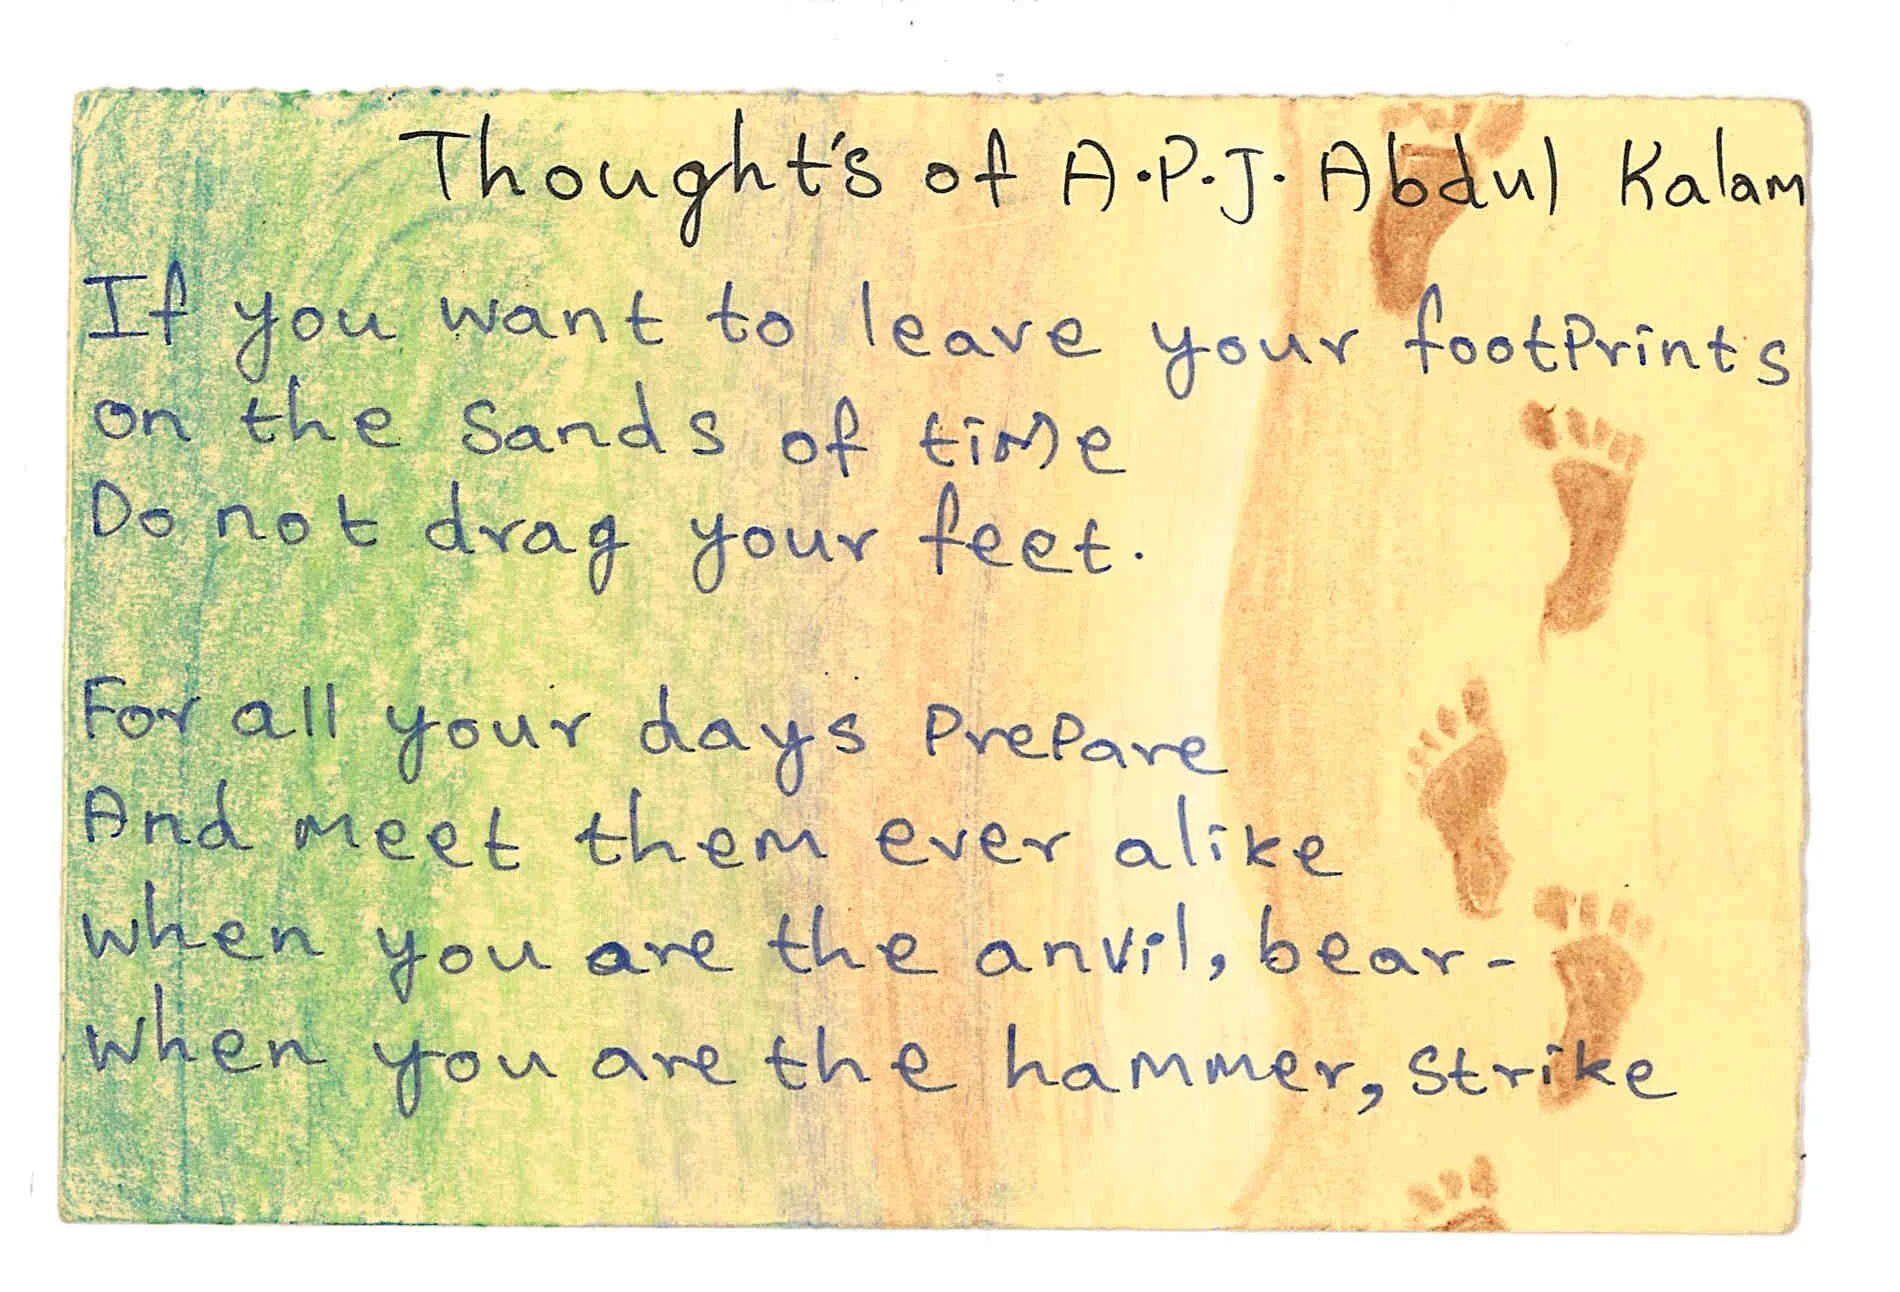 Thought's of A.P.J. Abdul Kalam
If you want to leave your footPrints
on the Sands of time
Do not drag your feet.
For all your days PrePare
And meet them ever alike
when you are the anvil, bear-
when you are the hammer, Strike